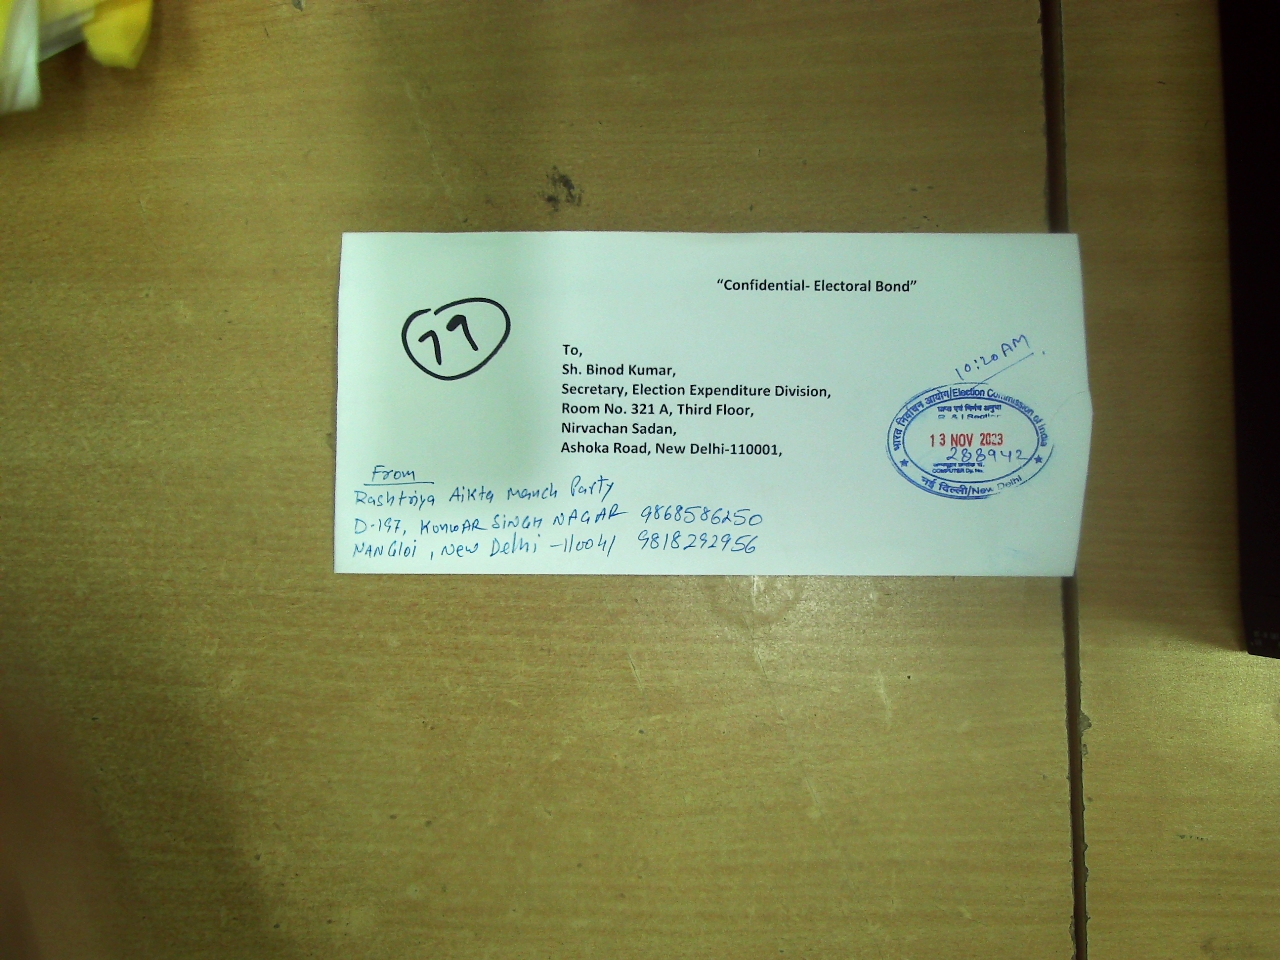 “Confidential- Electoral Bond”
79
To,
Sh. Binod Kumar,
Secretary, Election Expenditure Division,
Room No. 321 A, Third Floor,
Nirvachan Sadan,
Ashoka Road, New Delhi-110001,
10:20 AM
भारत निर्वाचन आयोग/Election Commission of India
13 NOV 2023
288942
COMPUTER Dy. No.
नई दिल्ली/New Delhi
From
Rashtriya Aikta Manch Party
D-197, KUNWAR SINGH NAGAR 9868586250
NANGLOI, New Delhi -110041 9818292956